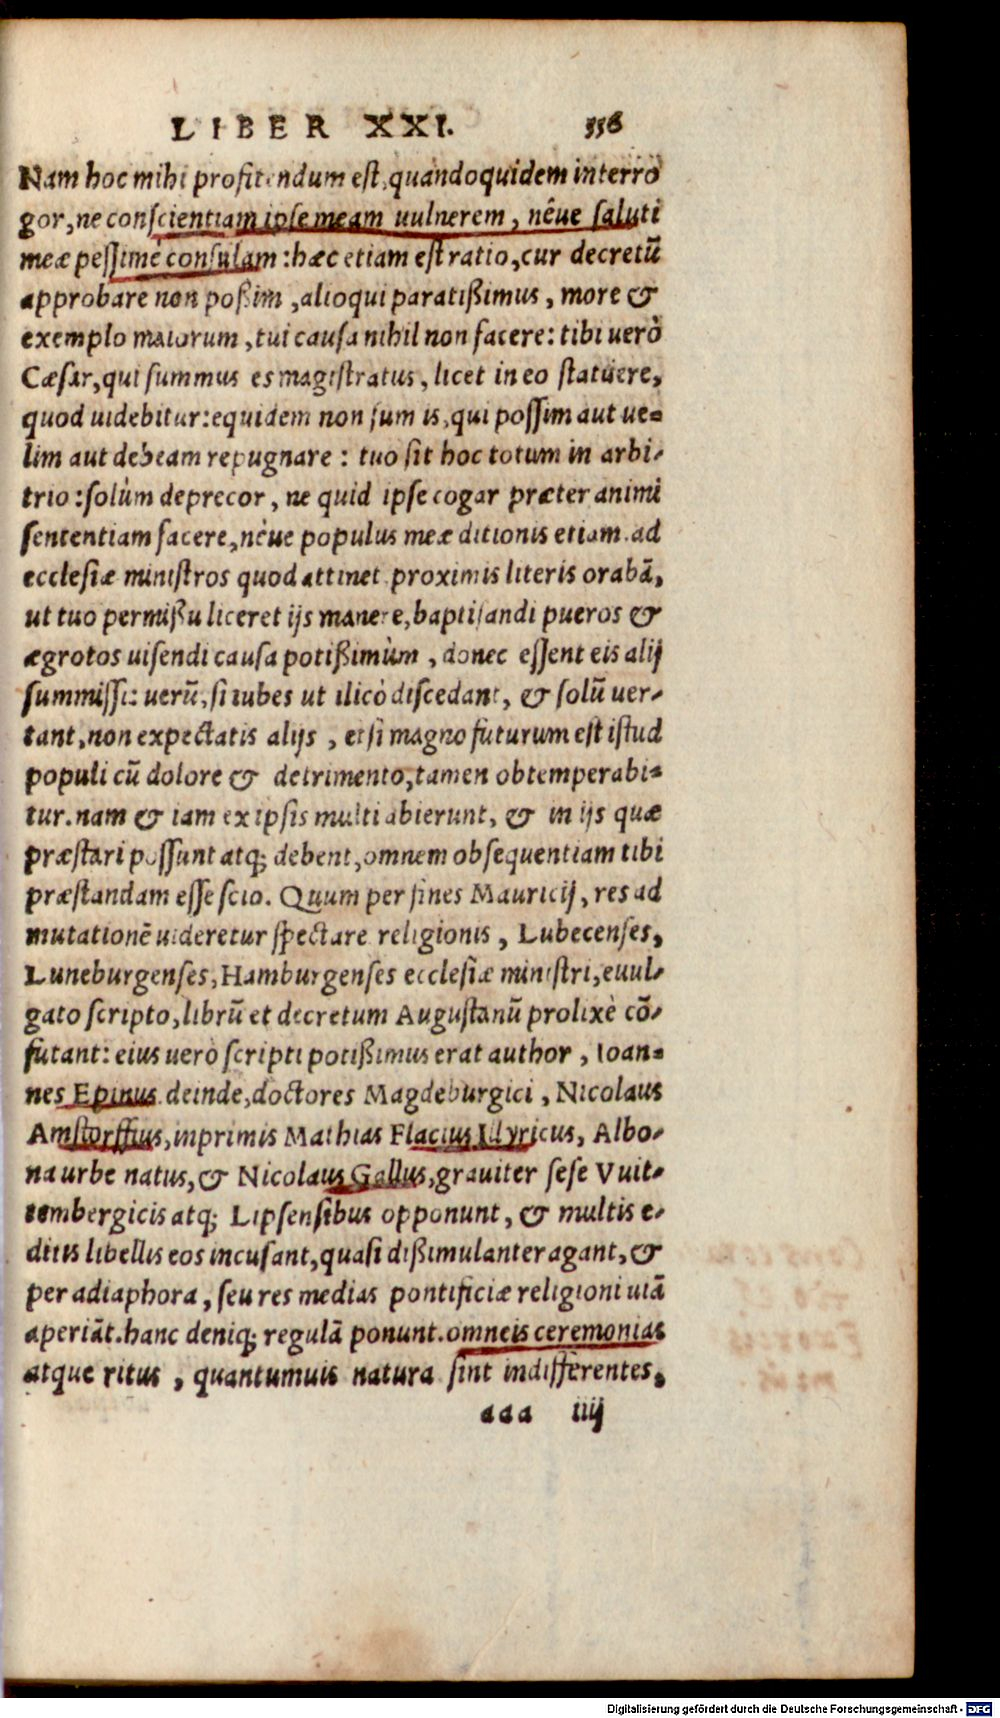 LIBER XXI. 556
Nam hoc mihi profitendum est, quandoquidem interro
gor, ne conscientiam ipse meam uulnerem, néue saluti
meæ pessimè consulam: hæc etiam est ratio, cur decretū
approbare non poßim, alioqui paratißimus, more &
exemplo maiorum, tui causa nihil non facere: tibi uerò
Cæsar, qui summus es magistratus, licet in eo statuere,
quod uidebitur: equidem non sum is, qui possim aut ue=
lim aut debeam repugnare: tuo sit hoc totum in arbi-
trio: solùm deprecor, ne quid ipse cogar præter animi
sententiam facere, néue populus meæ ditionis etiam. ad
ecclesiæ ministros quod attinet proximis literis orabā,
ut tuo permißu liceret ijs manere, baptisandi pueros &
ægrotos uisendi causa potißimùm, donec essent eis alij
summissi: uerū, si iubes ut ilicò discedant, & solū uer-
tant, non expectatis alijs, etsi magno futurum est istud
populi cū dolore & detrimento, tamen obtemperabi=
tur. nam & iam ex ipsis multi abierunt, & in ijs quæ
præstari possunt atq; debent, omnem obsequentiam tibi
præstandam esse scio. Quum per fines Mauricij, res ad
mutationē uideretur spectare religionis, Lubecenses,
Luneburgenses, Hamburgenses ecclesiæ ministri, euul-
gato scripto, librū et decretum Augustanū prolixè cō-
futant: eius uerò scripti potißimus erat author, Ioan=
nes Epinus. deinde, doctores Magdeburgici, Nicolaus
Amstorffius, inprimis Mathias Flacius Illyricus, Albo-
na urbe natus, & Nicolaus Gallus, grauiter sese Vuit-
tembergicis atq; Lipsensibus opponunt, & multis e-
ditis libellis eos incusant, quasi dißimulanter agant, &
per adiaphora, seu res medias pontificiæ religioni uiā
aperiāt. hanc deniq; regulā ponunt. omneis ceremonias
atque ritus, quantumuis natura sint indifferentes,
aaa iiij
Digitalisierung gefördert durch die Deutsche Forschungsgemeinschaft - DFG